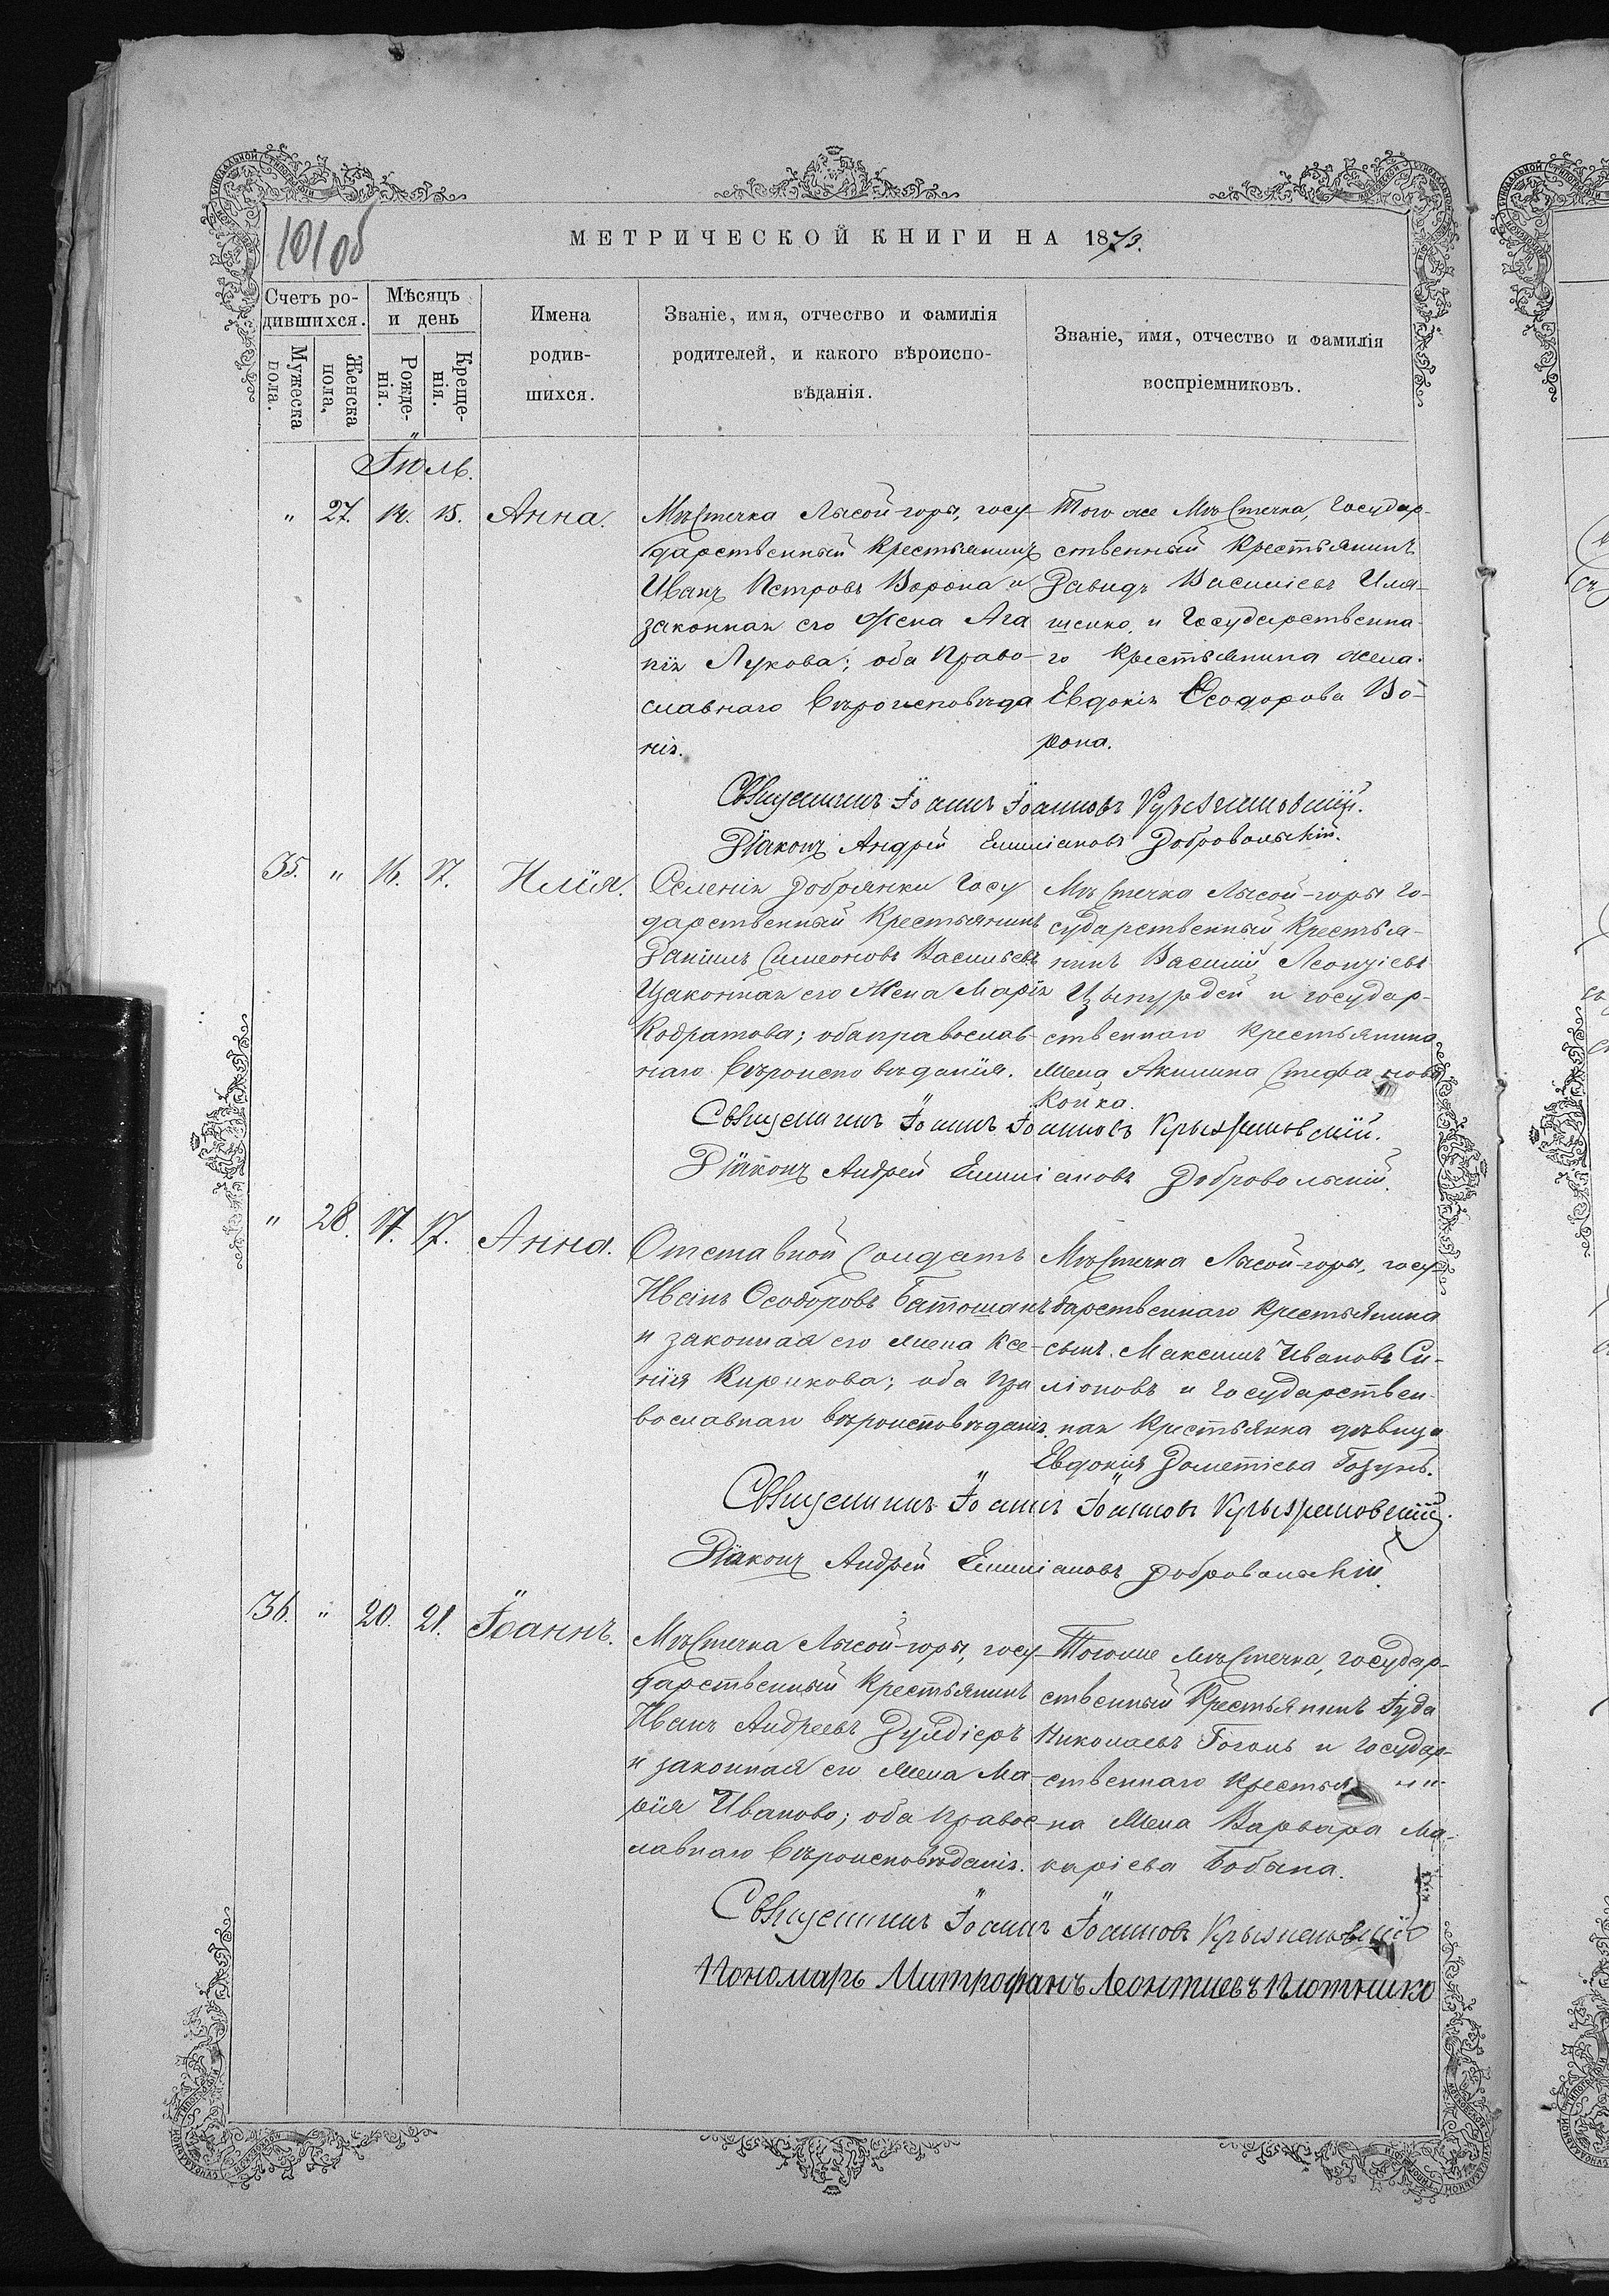 101 об
МЕТРИЧЕСКОЙ КНИГИ НА 1873.
Счетъ ро-
дившихся.
Мужеска
пола.
Женска
пола.
Мѣсяцъ
и день
Рожде-
нія.
Креще-
нія.
Имена
родив-
шихся.
Званіе, имя, отчество и фамилія
родителей, и какого вѣроиспо-
вѣданія.
Званіе, имя, отчество и фамилія
воспріемниковъ.
Іюль.
" 27. 14. 15. Анна.
Мѣстечка Лысой-горы, госу-
дарственный Крестьянинъ
Иванъ Петровъ Ворона и
законная его Жена Ага
пія Лукова; оба Право-
славнаго Вѣроисповѣда
нія.
Того же Мѣстечка, Государ-
ственный Крестьянинъ
Давидъ Василіевъ Иля-
шенко, и Государственна-
го Крестьянина жена
Евдокія Ѳеодорова Во-
рона.
Священникъ Іоаннъ Іоанновъ Крыжановскій.
Діаконъ Андрей Емиліановъ Добровольскій.
35. " 16. 17. Илія.
Селенія Добрянки Госу
дарственный Крестьянинъ
Даніилъ Симеоновъ Васильевъ
Изаконная его Жена Марія
Кодратова; оба православ-
наго Вѣроисповѣданія.
Мѣстечка Лысой-горы Го-
сударственный Крестья-
нинъ Василій Леонтіевъ
и государ-
ственнаго Крестьянина
жена Акилина Стефанова
Койка.
Священникъ Іоаннъ Іоанновъ Крыжановскій.
Діаконъ Андрей Емиліановъ Добровольскій.
" 28. 17. 17. Анна.
Отставной Солдатъ
Иванъ Ѳеодоровъ Батошанъ
и законная его жена Ксе-
нія Кирикова; оба Пра
вославнаго вѣроисповѣданія.
Мѣстечка Лысой-горы, госу-
дарственнаго Крестьянина
сынъ Максимъ Ивановъ Си-
ліоновъ и Государствен-
ная Крестьянка дѣвица
Евдокія Дометіева Гозунъ.
Священникъ Іоаннъ Іоанновъ Крыжановскій.
Діаконъ Андрей Емиліановъ Добровольскій.
36. " 20. 21. Іоаннъ.
Мѣстечка Лысой-горы, госу-
дарственный Крестьянинъ
Иванъ Андреевъ Дулдіеръ
и законная его жена Ма-
рія Иванова; оба Правос
лавнаго Вѣроисповѣданія.
Тогоже Мѣстечка, государ-
ственный Крестьянинъ Іуда
Николаевъ Гогонъ и государ-
ственнаго Крестьяни-
на Жена Варвара Ма-
каріева Бобына.
Священникъ Іоаннъ Іоанновъ Крыжановскій
Пономарь Митрофанъ Леонтиевъ Плотнико